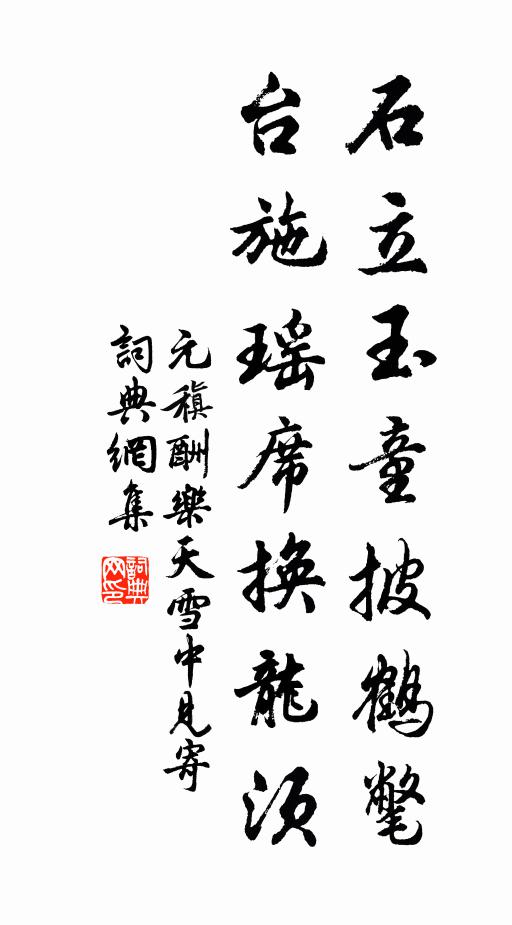 石立玉童披鹤氅
台施瑶席换龍须
元稹酬樂天雪中見寄
詞典網集
詞典网印